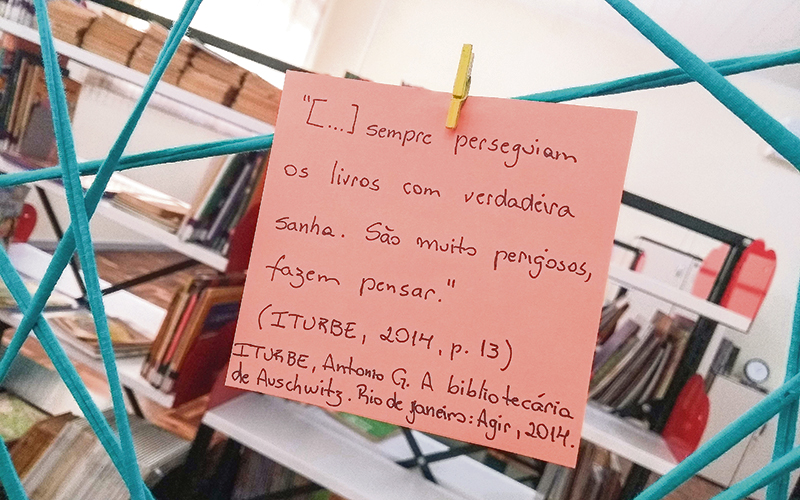 "[...] sempre perseguiam
os livros com verdadeira
sanha. São muito perigosos,
fazem pensar."
(ITURBE, 2014, p. 13)
ITURBE, Antonio G. A bibliotecária
de Auschwitz. Rio de Janeiro: Agir, 2014.